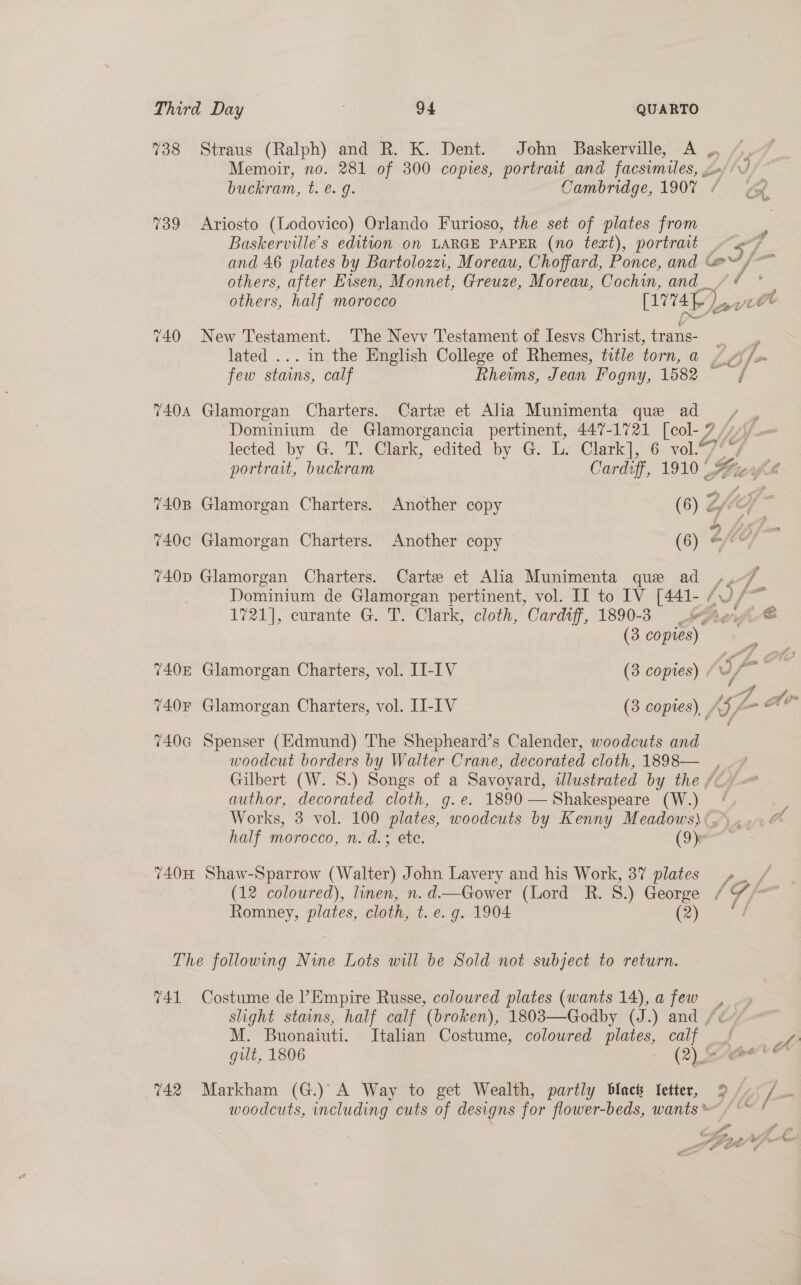 Third Day 94 QUARTO
738 Straus (Ralph) and R. K. Dent. John Baskerville, A
Memoir, no. 281 of 300 copies, portrait and facsimiles,
buckram, t. e. g. Cambridge, 1907
739 Ariosto (Lodovico) Orlando Furioso, the set of plates from
Baskerville's edition on LARGE PAPER (no text), portrait
and 46 plates by Bartolozzi, Moreau, Choffard, Ponce, and
others, after Eisen, Monnet, Greuze, Moreau, Cochin, and
others, half morocco [1774]
740 New Testament. The Nevv Testament of Iesvs Christ, trans-
lated ... in the English College of Rhemes, title torn, a
few stains, calf Rheims, Jean Fogny, 1582
740A Glamorgan Charters. Cartæ et Alia Munimenta quæ ad
Dominium de Glamorgancia pertinent, 447-1721 [col-
lected by G. T. Clark, edited by G. L. Clark], 6 vol.
portrait, buckram Cardiff, 1910
740B Glamorgan Charters. Another copy (6)
740C Glamorgan Charters. Another copy (6)
740D Glamorgan Charters. Cartæ et Alia Munimenta quæ ad
Dominium de Glamorgan pertinent, vol. II to IV [441-
1721], curante G. T. Clark, cloth, Cardiff, 1890-3
(3 copies)
740E Glamorgan Charters, vol. II-IV (3 copies)
740F Glamorgan Charters, vol. II-IV (3 copies),
740G Spenser (Edmund) The Shepheard's Calender, woodcuts and
woodcut borders by Walter Crane, decorated cloth, 1898—
Gilbert (W. S.) Songs of a Savoyard, illustrated by the
author, decorated cloth, g. e. 1890—Shakespeare (W.)
Works, 3 vol. 100 plates, woodcuts by Kenny Meadows)
half morocco, n. d.; etc. (9)
740H Shaw-Sparrow (Walter) John Lavery and his Work, 37 plates
(12 coloured), linen, n. d.—Gower (Lord R. S.) George
Romney, plates, cloth, t. e. g. 1904 (2)
The following Nine Lots will be Sold not subject to return.
741 Costume de l'Empire Russe, coloured plates (wants 14), a few
slight stains, half calf (broken), 1803—Godby (J.) and
M. Buonaiuti. Italian Costume, coloured plates, calf
gilt, 1806 (2)
742 Markham (G.) A Way to get Wealth, partly black letter,
woodcuts, including cuts of designs for flower-beds, wants